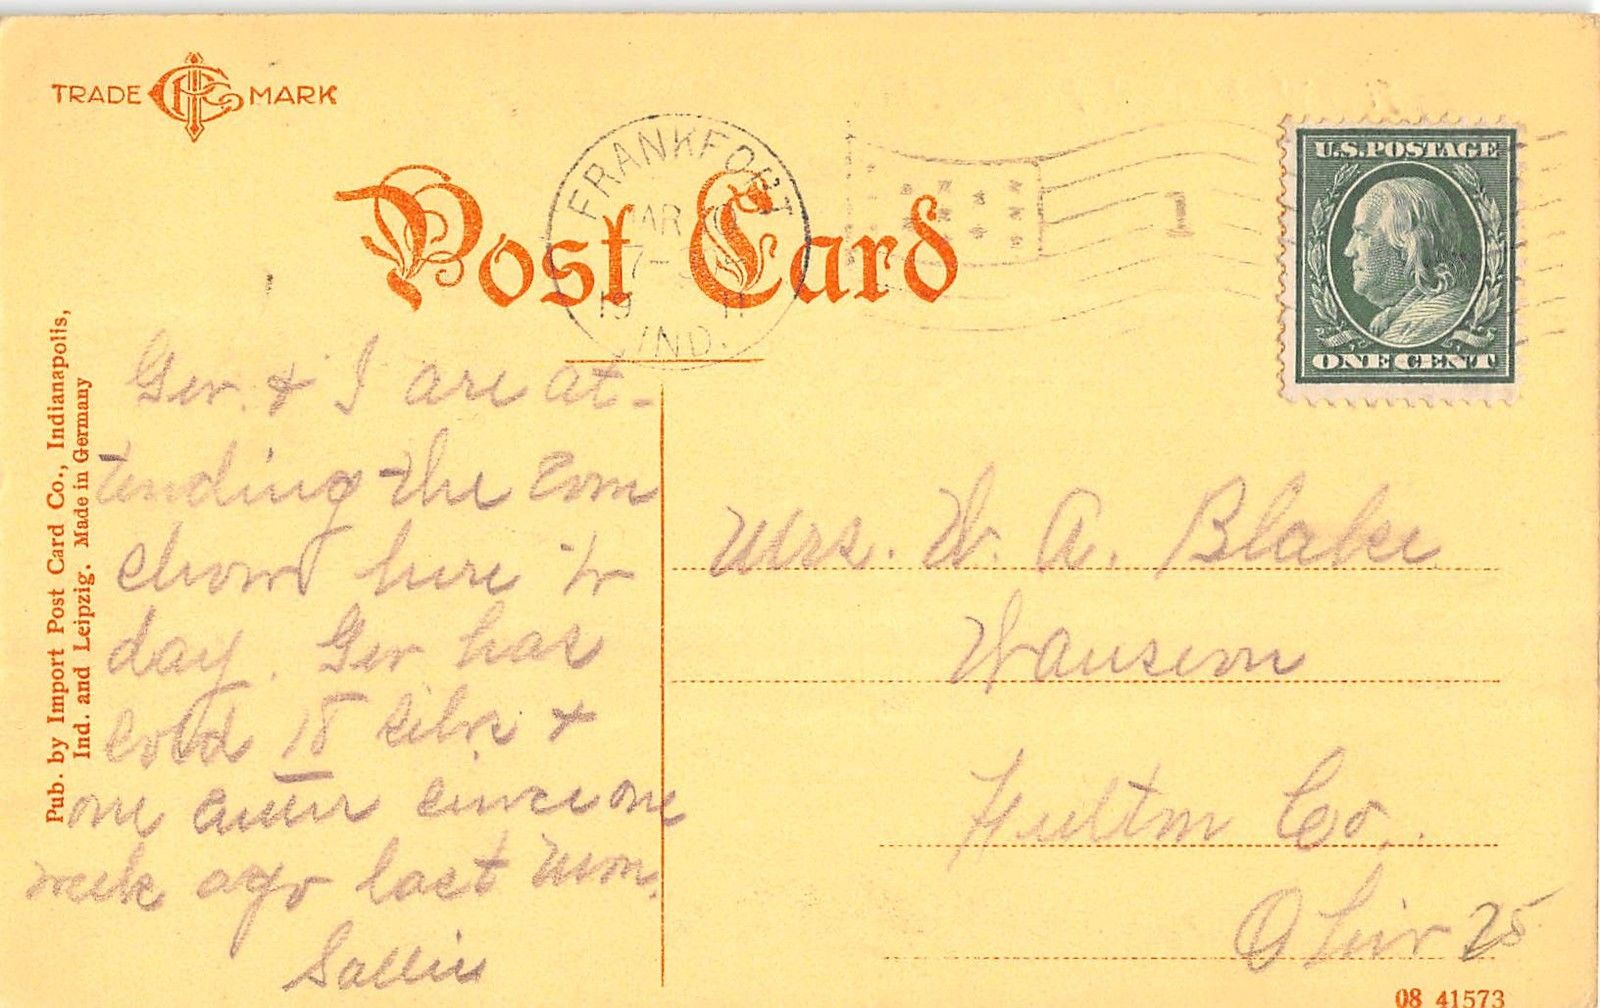 TRADE MARK
Post Card
FRANKFORT
MAR
7-
19 11
IND.
1
U.S. POSTAGE
ONE CENT
Pub. by Import Post Card Co., Indianapolis,
Ind. and Leipzig. Made in Germany
Geo. & I are at-
tending the corn
show here to
day. Geo has
sold 18 silos &
one cutter since one
week ago last Mon.
Sallie
Mrs. W. A. Blake
Wauseon
Fulton Co.
Ohio 25
08 41573